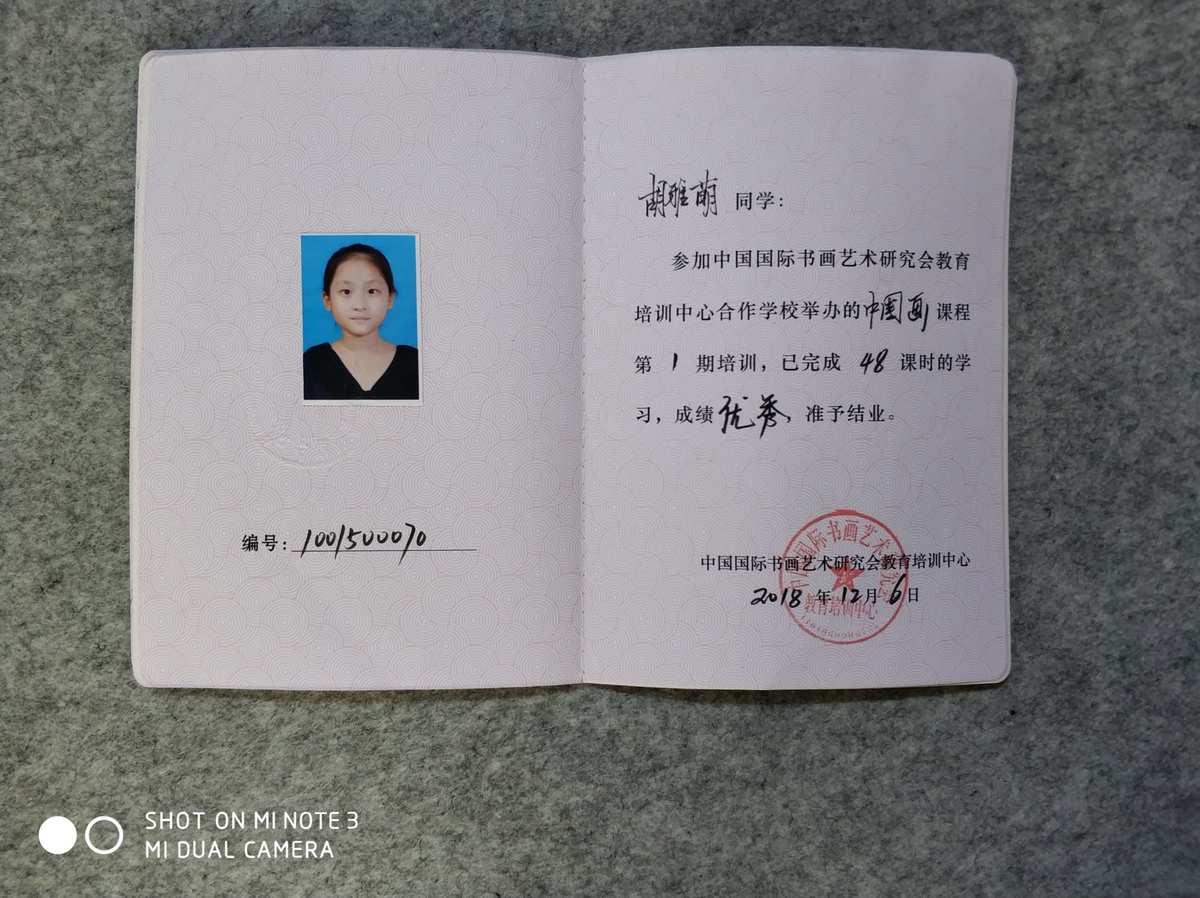 编号: 1001500070
胡雅萌 同学:
参加中国国际书画艺术研究会教育
培训中心合作学校举办的中国画课程
第 1 期培训，已完成 48 课时的学
习，成绩优秀，准予结业。
中国国际书画艺术研究会
教育培训中心
中国国际书画艺术研究会教育培训中心
2018 年 12 月 6 日
SHOT ON MI NOTE 3
MI DUAL CAMERA